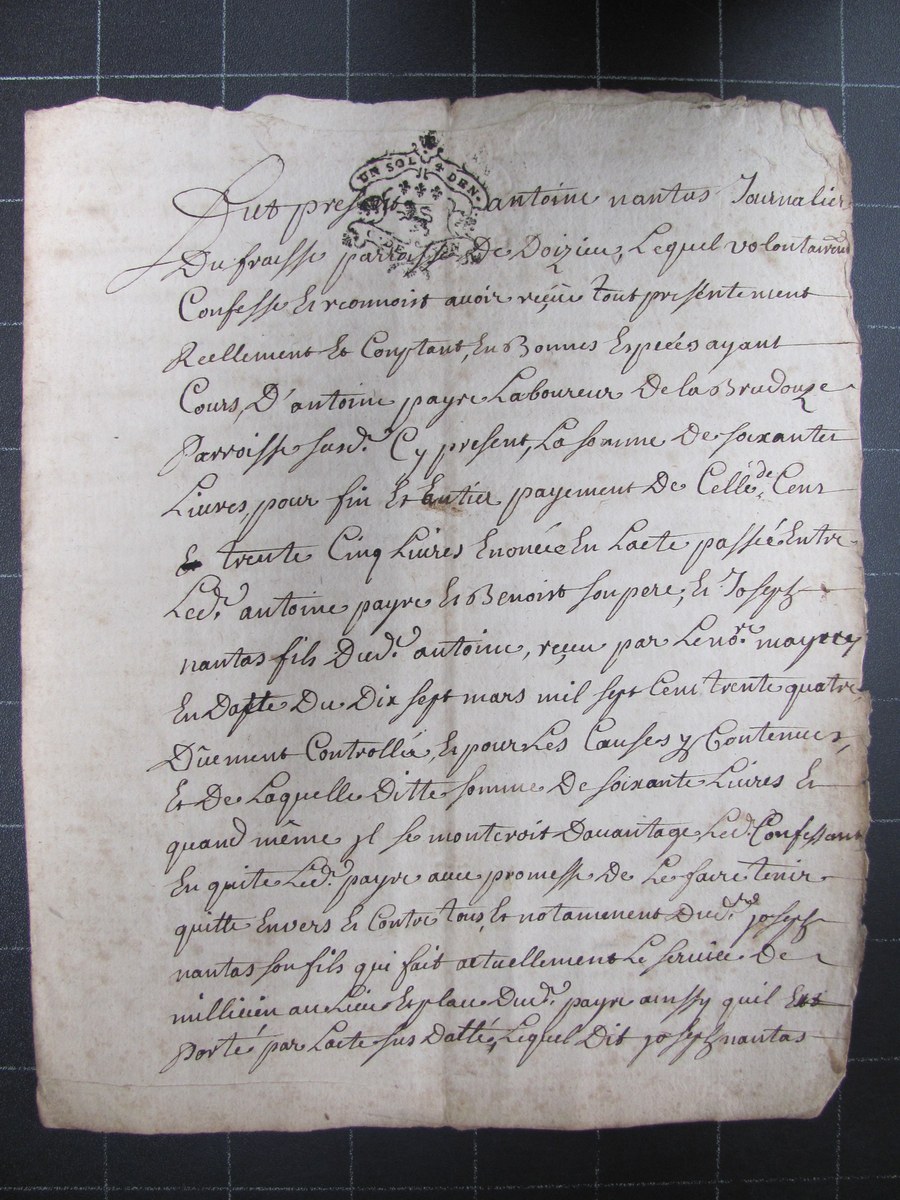 UN SOL 4 DEN.
Fut present antoine nantas Journalier
Du fraisse parroisse De Doizieu, Lequel volontairemt
Confesse Et reconnoist avoir reçeu tout presentement
Reellement Et Comptant, En Bonnes Especes ayant
Cours, D'antoine payre Laboureur De la Brudouze
Parroisse susd.e Cy present, La somme De soixantes
Livres, pour fin Et Entier payement De Celle de Cent
& trente Cinq Livres Enoncée En Lacte passé Entre
Led.t antoine payre Et Benoist son pere, Et Joseph
nantas fils Dud.t antoine, reçeu par Le no.re
En Datte Du Dix sept mars mil sept Cent trente quatre
Dûement Controllée, Et pour Les Causes y Contenues,
Et De Laquelle Ditte somme De soixante Livres Et
quand même jl se monteroit Davantage Led.t Confessant
En quite Led.t payre avec promesse De Le faire tenir
quitte Envers Et Contre tous, Et notament Dud.t joseph
nantas son fils qui fait actuellement Le service De
millicien au Lieu Et place Dud.t payre ainssy quil Est
porté par Lacte sus Datté, Lequel Dit joseph nantas